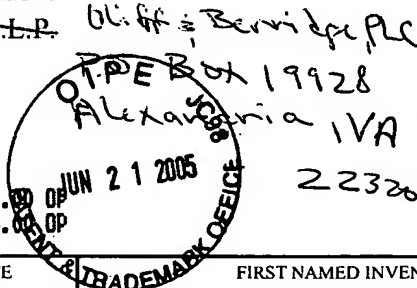 L.P. Oliff & Berridge, PLC
P.O. Box 19928
Alexandria, VA
22320
O I P E JC98
JUN 21 2005
PATENT & TRADEMARK OFFICE
.00 OP
.00 OP
E FIRST NAMED INVEN